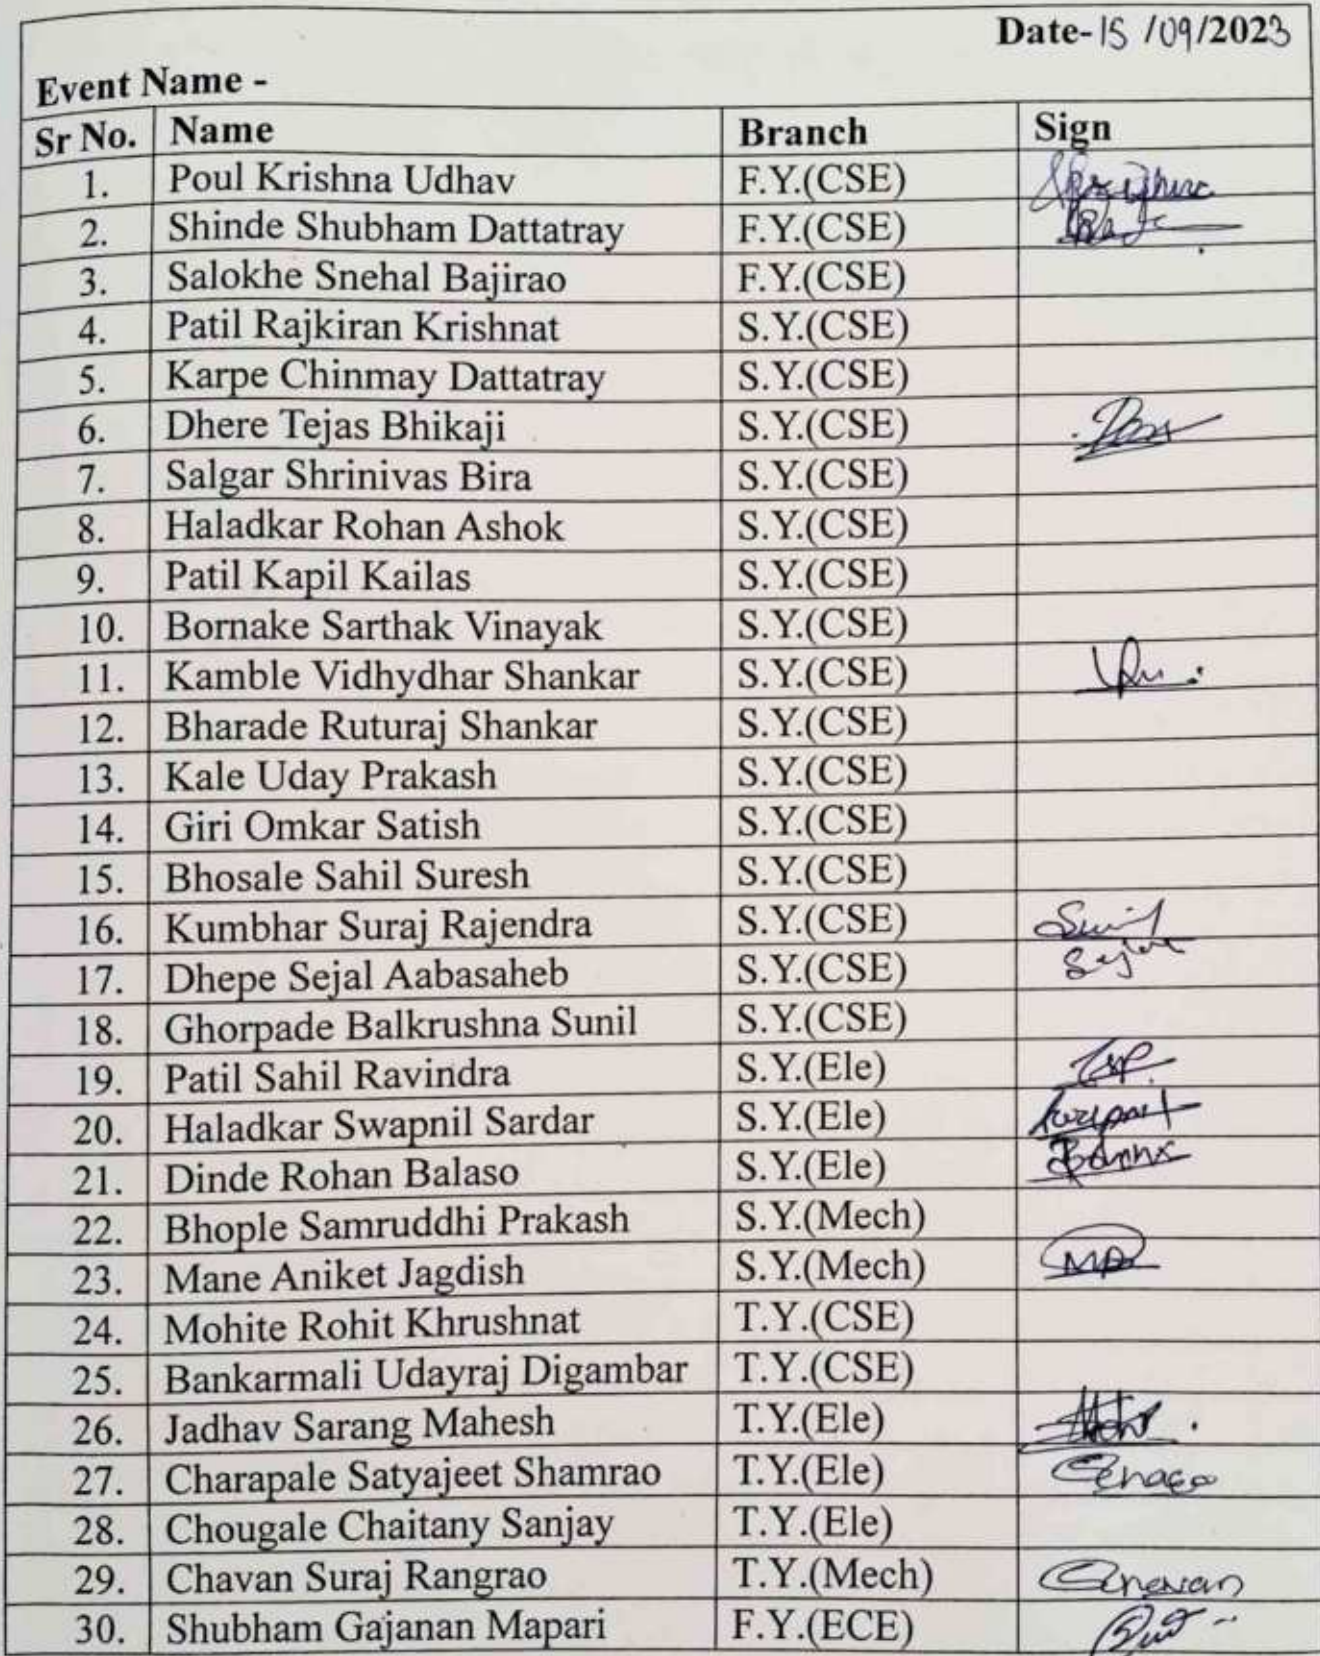 Date-15 /09/2023
Event Name -
Sr No. Name Branch Sign
1. Poul Krishna Udhav F.Y.(CSE)
2. Shinde Shubham Dattatray F.Y.(CSE)
3. Salokhe Snehal Bajirao F.Y.(CSE)
4. Patil Rajkiran Krishnat S.Y.(CSE)
5. Karpe Chinmay Dattatray S.Y.(CSE)
6. Dhere Tejas Bhikaji S.Y.(CSE)
7. Salgar Shrinivas Bira S.Y.(CSE)
8. Haladkar Rohan Ashok S.Y.(CSE)
9. Patil Kapil Kailas S.Y.(CSE)
10. Bornake Sarthak Vinayak S.Y.(CSE)
11. Kamble Vidhydhar Shankar S.Y.(CSE)
12. Bharade Ruturaj Shankar S.Y.(CSE)
13. Kale Uday Prakash S.Y.(CSE)
14. Giri Omkar Satish S.Y.(CSE)
15. Bhosale Sahil Suresh S.Y.(CSE)
16. Kumbhar Suraj Rajendra S.Y.(CSE)
17. Dhepe Sejal Aabasaheb S.Y.(CSE) Sejal
18. Ghorpade Balkrushna Sunil S.Y.(CSE)
19. Patil Sahil Ravindra S.Y.(Ele)
20. Haladkar Swapnil Sardar S.Y.(Ele)
21. Dinde Rohan Balaso S.Y.(Ele)
22. Bhople Samruddhi Prakash S.Y.(Mech)
23. Mane Aniket Jagdish S.Y.(Mech)
24. Mohite Rohit Khrushnat T.Y.(CSE)
25. Bankarmali Udayraj Digambar T.Y.(CSE)
26. Jadhav Sarang Mahesh T.Y.(Ele)
27. Charapale Satyajeet Shamrao T.Y.(Ele)
28. Chougale Chaitany Sanjay T.Y.(Ele)
29. Chavan Suraj Rangrao T.Y.(Mech) Chavan
30. Shubham Gajanan Mapari F.Y.(ECE)